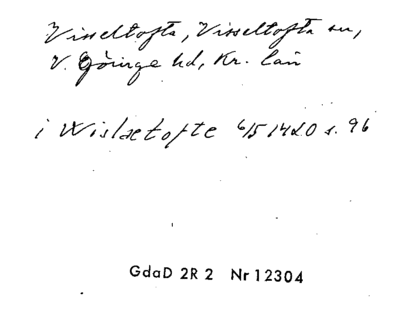 Visseltofta, Visseltofta sn,
V. Göinge hd, Kr. län
i Wislætofte 6/5 1420 s. 96
GdaD 2R 2 Nr 12304